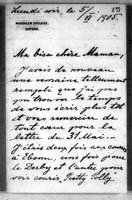 Lundi soir, le 5/VI 1905.
MAGDALEN COLLEGE,
OXFORD.
Ma bien chère Maman,
J'avais de nouveau
une semaine tellement
remplie que je n'ai pas
pu trouver le temps de
vous écrire plus tôt
et vous remercier de
tout cœur pour la
lettre du 31 Mai.
J'étais deux fois aux courses
à Epsom, une fois pour
le Derby et l'autre pour
voir courir, Pretty Polly